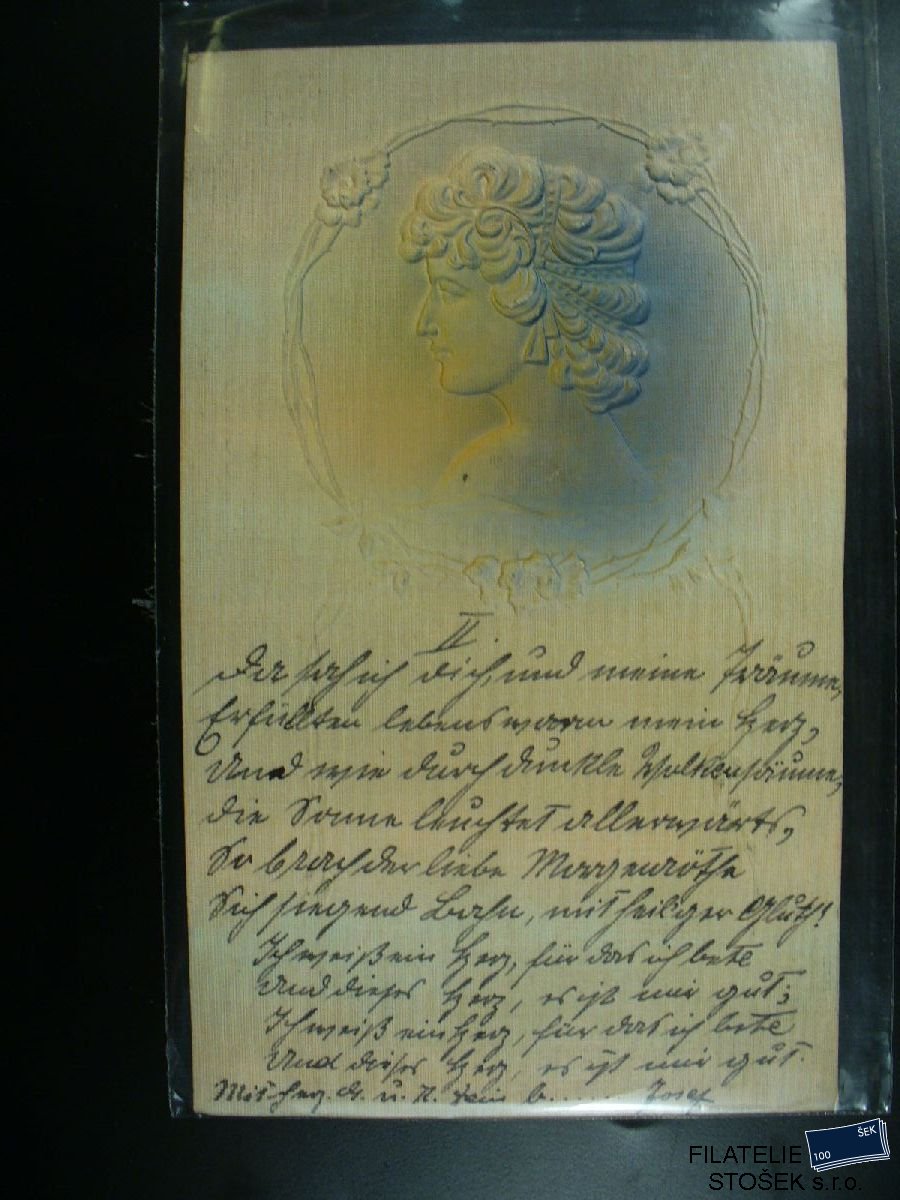 II.
Da sah ich dich, und meine Träume,
Erfüllten lebenswarm mein Herz,
Und wie durch dunkle Wolkensäume,
die Sonne leuchtet allerwärts,
So brach der liebe Morgenröthe
Sich siegend Bahn, mit heil'ger Gluth!
Ich weiß ein Herz, für das ich bete
Und dieses Herz, es ist mir gut;
Ich weiß ein Herz, für das ich bete
Und dieses Herz, es ist mir gut.
Mit herz. Gr. u. K. Dein b..... Josef
FILATELIE
STOŠEK s.r.o.
100 ŠEK